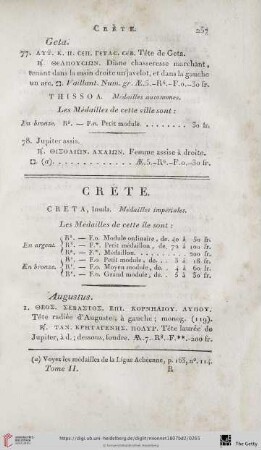 CRÈTE. 257
Geta.
77. ΑΥΤ. Κ. Π. CΕΠ. ΓΕΤΑC. CΕΒ. Tête de Geta.
ΘΕΛΠΟΥCΙΩΝ. Diane chasseresse marchant,
tenant dans la main droite un javelot, et dans la gauche
un arc. Vaillant. Num. gr. Æ.5.—R⁸.—F.o.—30 fr.
THISSOA. Médailles autonomes.
Les Médailles de cette ville sont :
En bronze. R⁸. — F.o. Petit module . . . . . . . 30 fr.
78. Jupiter assis.
ΑΧΑΙΩΝ. Femme assise à droite.
(a) . . . . . . . . . Æ.5.—R⁸.—F.o.—30 fr.
CRETE.
CRETA, Insula. Médailles impériales.
Les Médailles de cette île sont :
En argent.
— F.o. Module ordinaire, de. 40 à 50 fr.
— F.*. Petit médaillon, de. 72 à 100 fr.
— F.*. Médaillon. . . . . . . 200 fr.
En bronze.
— F.o. Petit module, de. . 3 à 18 fr.
— F.o. Moyen module, de. . 4 à 60 fr.
— F.o. Grand module ; de. . 8 à 50 fr.
Augustus.
1. ΘΕΟΣ. ΣΕΒΑΣΤΟΣ. ΕΠΙ. ΚΟΡΝΗΛΙΟΥ. ΛΥΠΟΥ.
Tête radiée d'Auguste, à gauche ; monog. (119).
ΤΑΝ. ΚΡΗΤΑΓΕΝΗΣ. ΠΟΛΥΡ. Tête laurée de
Jupiter, à d. ; dessous, foudre. Æ.7.—R⁸.F.**.—200 fr.
(a) Voyez les médailles de la Ligue Achéenne, p. 165, n°. 114.
Tome II. R
https://digi.ub.uni-heidelberg.de/diglit/mionnet1807bd2/0265
The Getty